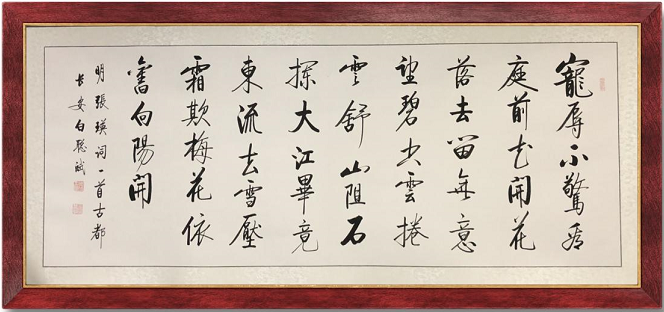 寵辱不驚看
庭前花開花
落去留無意
望碧空雲捲
雲舒山阻石
攔大江畢竟
東流去雪壓
霜欺梅花依
舊向陽開
明張瑛詞一首古都
長安白聰